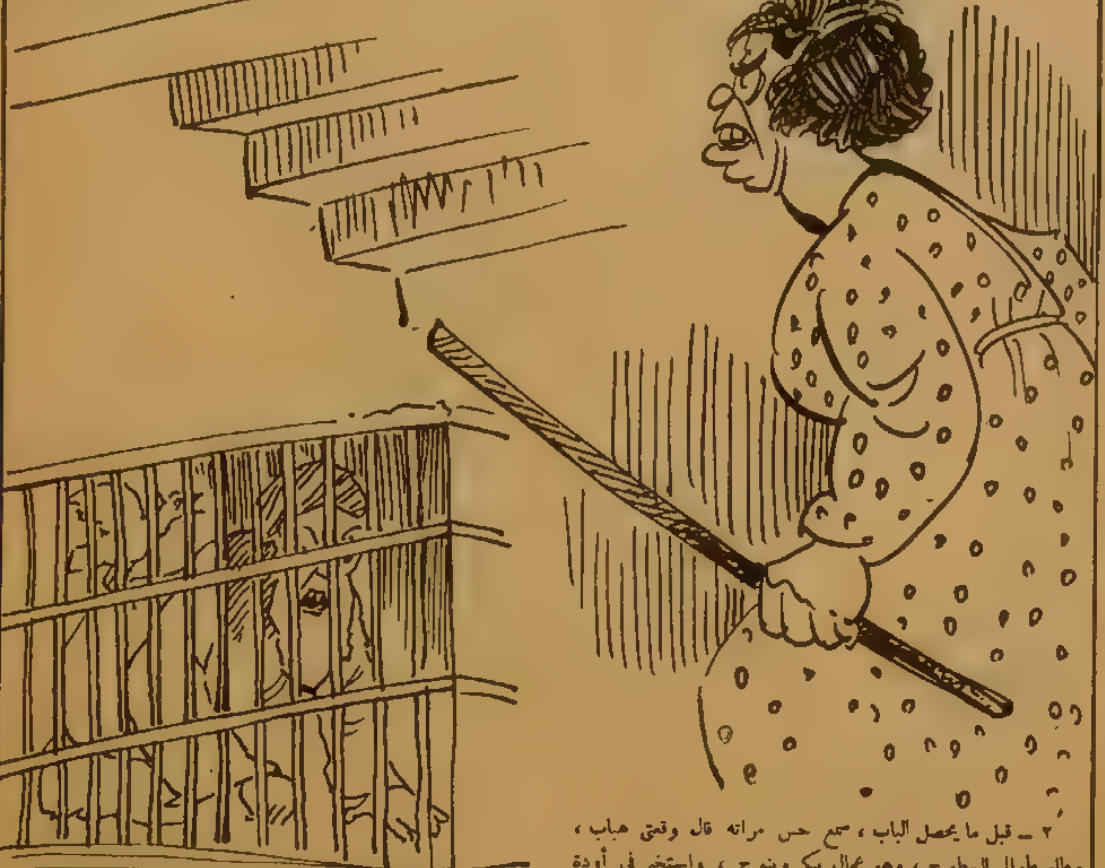 ٢ – قبل ما يحصل الباب ، سمع حس مراته قال وقعتى هباب ،
وهو عمال يبكى وينوح ، واستخبى فى أودة